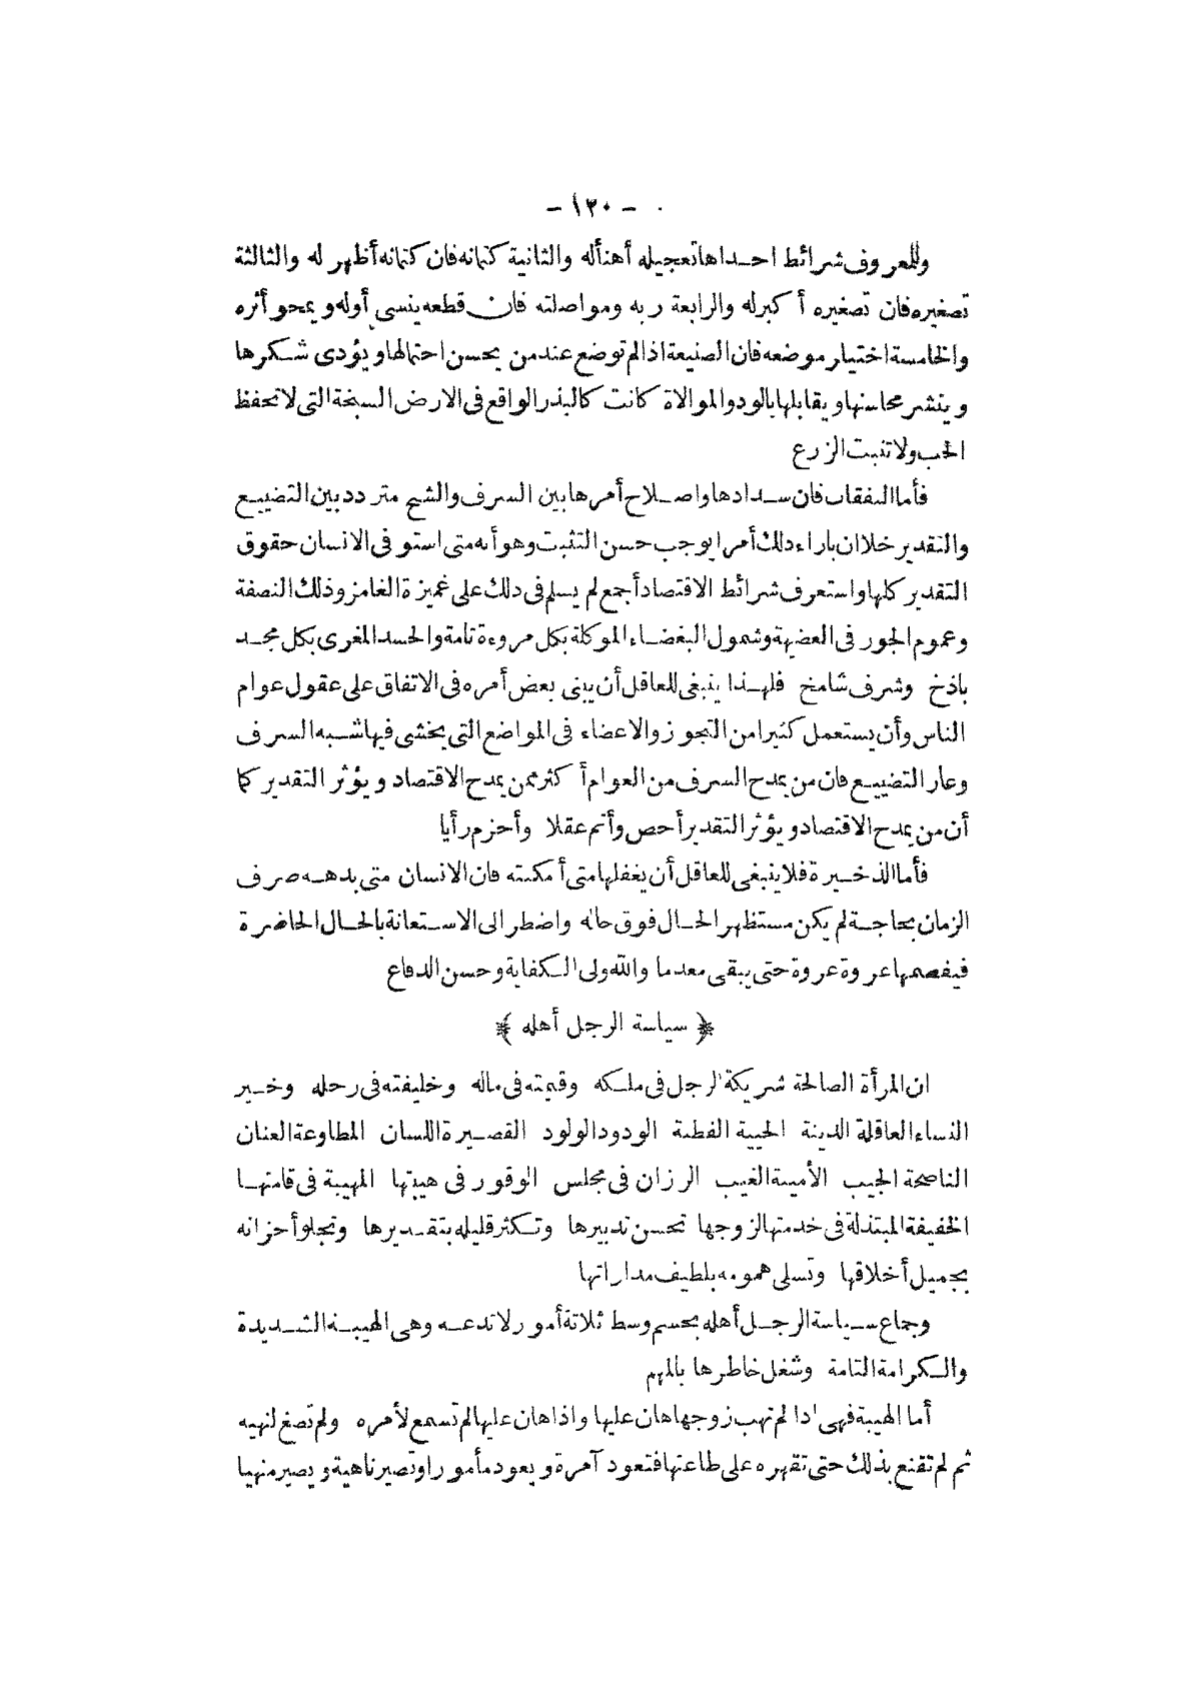 - ١٣٠ -
وللمعروف شرائط احداها تعجيله أهنأله والثانية كتمانه فان كتمانه أظهر له والثالثة
تصغيره فان تصغيره أكبرله والرابعة ربه ومواصلته فان قطعه ينسى أوله ويمحو أثره
والخامسة اختيار موضعه فان الصنيعة اذا لم توضع عند من يحسن احتمالها ويؤدى شكرها
وينشر محاسنها ويقابلها بالود والموالاة كانت كالبذر الواقع فى الارض السبخة التى لا تحفظ
الحب ولا تنبت الزرع
فأما النفقات فان سدادها واصلاح أمرها بين السرف والشح متردد بين التضييع
والتقدير خلا ان باراء ذلك أمرا يوجب حسن التثبت وهو أنه متى استوفى الانسان حقوق
التقدير كلها واستعرف شرائط الاقتصاد أجمع لم يسلم فى ذلك على غميزة الغامز وذلك النصفة
وعموم الجور فى العضيهة وشمول البغضاء الموكلة بكل مروءة تامة والحسد المغرى بكل مجد
باذخ وشرف شامخ فلهذا ينبغى للعاقل أن يبنى بعض أمره فى الاتفاق على عقول عوام
الناس وأن يستعمل كثيرا من التجوز والاعضاء فى المواضع التى يخشى فيها شبه السرف
وعار التضييع فان من يمدح السرف من العوام أكثر ممن يمدح الاقتصاد ويؤثر التقدير كما
أن من يمدح الاقتصاد ويؤثر التقدير أحص وأتم عقلا وأحزم رأيا
فأما الذخيرة فلا ينبغى للعاقل أن يغفلها متى أمكنته فان الانسان متى بدهه صرف
الزمان بحاجة لم يكن مستظهر الحال فوق حاله واضطر الى الاستعانة بالحال الحاضرة
فيفصمها عروة عروة حتى يبقى معدما والله ولى الكفاية وحسن الدفاع
﴿ سياسة الرجل أهله ﴾
ان المرأة الصالحة شريكة الرجل فى ملكه وقيمته فى ماله وخليفته فى رحله وخير
النساء العاقلة الدينة الحيية الفطنة الودود الولود القصيرة اللسان المطاوعة العنان
الناصحة الجيب الأمينة الغيب الرزان فى مجلس الوقور فى هيبتها المهيبة فى قامتها
الخفيفة المبتذلة فى خدمتها لزوجها تحسن تدبيرها وتكثر قليله بتقديرها وتجلو أحزانه
بجميل أخلاقها وتسلى همومه بلطيف مداراتها
وجماع سياسة الرجل أهله بحسم وسط ثلاثة أمور لا تدعه وهى الهيبة الشديدة
والكرامة التامة وشغل خاطرها بالمهم
أما الهيبة فهى اذا لم تهب زوجها هان عليها واذا هان عليها لم تسمع لأمره ولم تصغ لنهيه
ثم لم تقنع بذلك حتى تقهره على طاعتها فتعود آمرة ويعود مأمورا وتصير ناهية ويصير منهيا